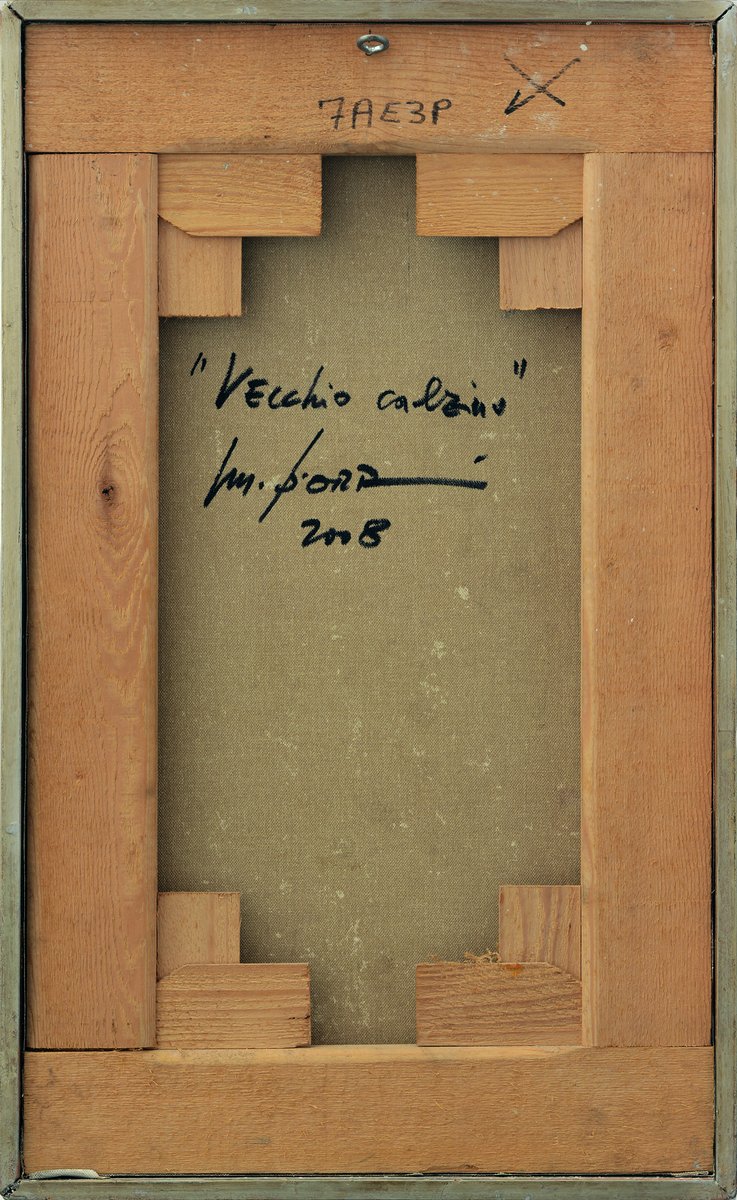 7AE3P
"Vecchio calzino"
2008